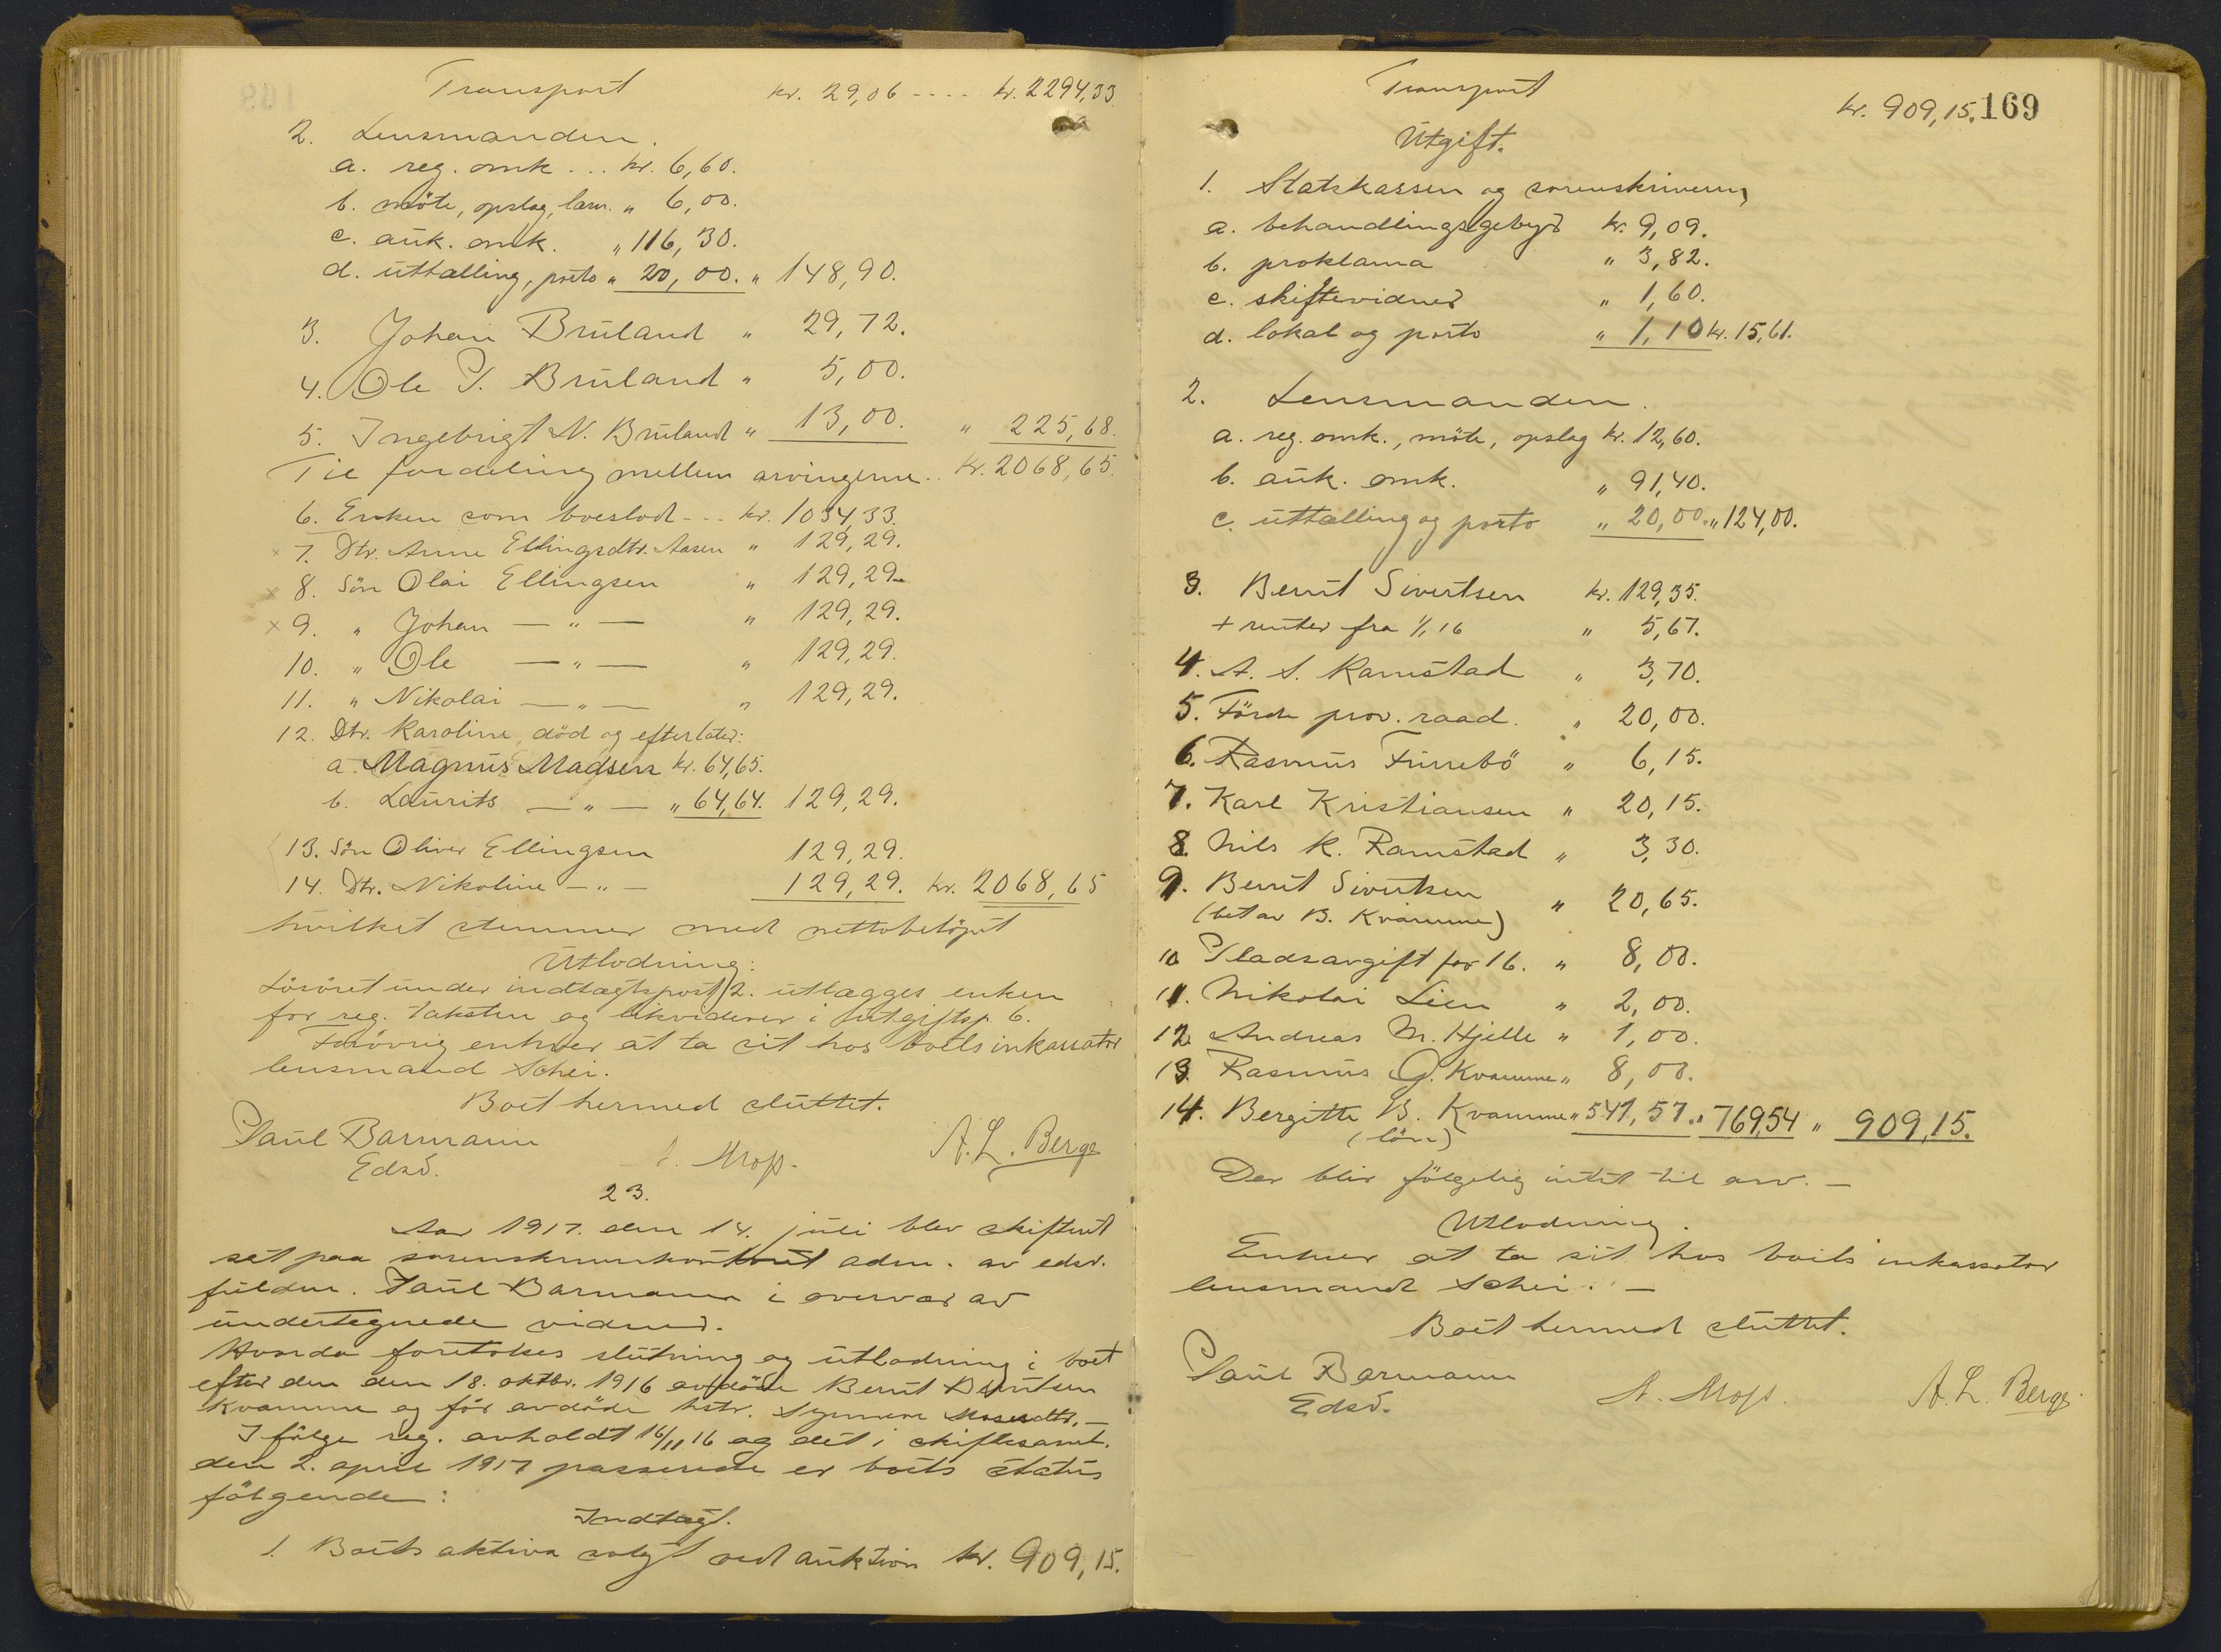 Transport kr. 29,06 .... kr. 2294,33
2. Lensmanden.
a. reg. omk ... kr. 6,60.
b. möte, opslag, larm. " 6,00.
c. auk. omk. " 116,30.
d. uttælling, porto " 20,00. " 148,90.
3. Johan Bruland " 29,72.
4. Ole P. Bruland " 5,00.
5. Ingebrigt N. Bruland " 13,00. " 225,68.
Til fordeling mellem arvingerne .. kr. 2068,65.
6. Enken som boeslod ... kr. 1034,33.
x 7. Dtr. Anne Ellingsdtr. Aasen " 129,29.
x 8. Sön Olai Ellingsen " 129,29.
x 9. " Johan — " — " 129,29.
10. " Ole — " — " 129,29.
11. " Nikolai — " — " 129,29.
12. Dtr. Karoline, död og efterlater:
a. Magnus Madsen kr. 64,65.
b. Laurits — " — " 64,64. 129,29.
13. Sön Oliver Ellingsen 129,29.
14. Dtr. Nikoline — " — 129,29. kr. 2068,65
hvilket stemmer med nettobelöpet
Utlodning:
Lösöret under indtægtspost 2. utlægges enken
for reg. taksten og likviderer i utgiftsp. 6.
Forövrig enhver at ta sit hos boets inkassator
lensmand Schei.
Boet hermed sluttet.
Paul Barmann
Edsv.
A. Mops.
A. L. Berge
23.
Aar 1917. den 14. juli blev skifteret
sat paa sorenskriverkontoret adm. av edsv.
fuldm. Paul Barmann i overvær av
undertegnede vidner.
Hvorda foretokes slutning og utlodning i boet
efter den den 18. oktbr. 1916 avdöde Berrit Berntsen
Kvamme og för avdöde hstr. Synneve Mosesdtr. —
Ifölge reg. avholdt 16/11 16 og det i skiftesaml.
den 2. april 1917 passerede er boets status
fölgende:
Indtægt.
1. Boets aktiva solgt ved auktion kr. 909,15.
Transport kr. 909,15. 169
Utgift.
1. Statskassen og sorenskriveren,
a. behandlingsgebyr kr. 9,09.
b. proklama " 3,82.
c. skiftevidner " 1,60.
d. lokal og porto " 1,10 kr. 15,61.
2. Lensmanden.
a. reg. omk., möte, opslag kr. 12,60.
b. auk. omk. " 91,40.
c. uttælling og porto " 20,00. " 124,00.
3. Berrit Sivertsen kr. 129,35.
+ renter fra 1/1 16 " 5,67.
4. A. S. Ramstad " 3,70.
5. Förde prov. raad. " 20,00.
6. Rasmus Furrebö " 6,15.
7. Karl Kristiansen " 20,15.
8. Nils K. Ramstad " 3,30.
9. Berrit Sivertsen " 20,65.
(bet av B. Kvamme)
10 Pladsavgift for 16. " 8,00.
11. Nikolai Lien " 2,00.
12 Andreas M. Hjelle " 1,00.
13. Rasmus G. Kvamme " 8,00.
14. Bergitte B. Kvamme " 541,57. " 769,54 " 909,15.
(lön)
Der blir fölgelig intet til arv. —
Utlodning.
Enhver at ta sit hos boets inkassator
lensmand Schei. —
Boet hermed sluttet.
Paul Barmann
Edsv.
A. Mops.
A. L. Berge